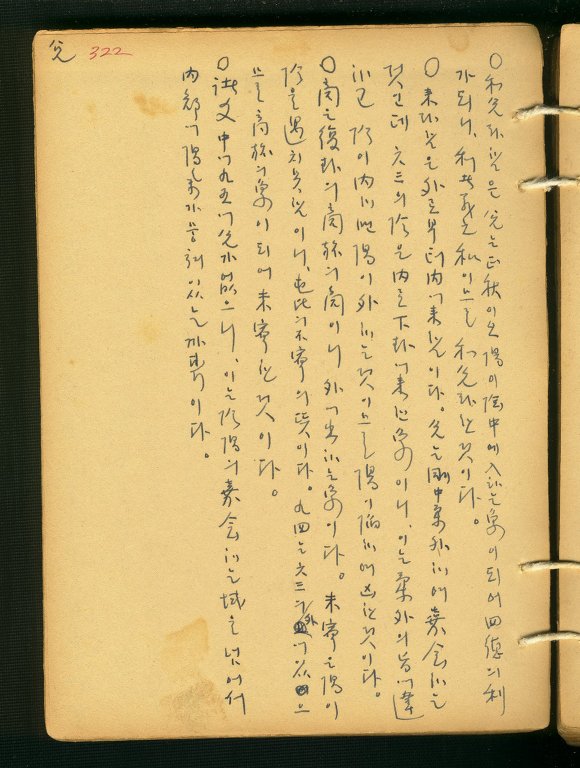 兌 322
○和兌라 함은 兌는 正秋이오 陽이 陰中에 入하는 象이 되어 四德의 利
가 되니, 利는 和이므로 和兌라 한 것이다.
○來兌라 함은 外로부터 內에 來함이다. 兌는 剛中柔外하여 嘉會하는
것인데 六三의 陰은 內로 下卦에 來한 象이니, 이는 柔外의 旨에 違
하고 陰이 內하며 陽이 外하는 것이므로 陽이 陷하여 凶한 것이다.
○商은 復卦의 商旅의 商이니 外에 出하는 象이다. 未寧은 陽이
陰을 遇치 못함이니, 比의 不寧의 뜻이다. 九四는 六三의 外에 있으
므로 商旅의 象이 되어 未寧한 것이다.
○此爻 中에 九五에 兌가 없으니, 이는 陰陽의 嘉會하는 域을 넘어서
內部에 陽氣가 있는 까닭이다.